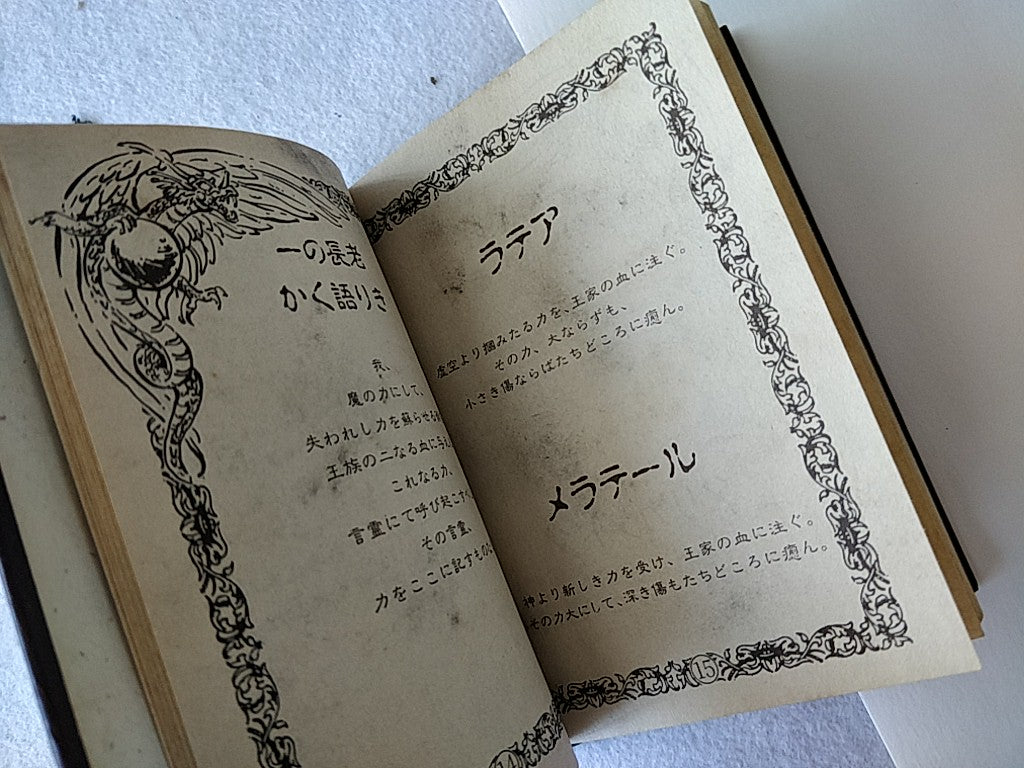 一の長老
かく語りき
我、
魔の力にして、
失われし力を蘇らせる
王族の二なる血に与え
これなる力、
言霊にて呼び起こすべ
その言霊、
力をここに記すものな
14
ラテア
虚空より掴みたる力を、王家の血に注ぐ。
その力、大ならずも、
小さき傷ならばたちどころに癒ん。
メラテール
神より新しき力を受け、王家の血に注ぐ。
その力大にして、深き傷もたちどころに癒ん。
15